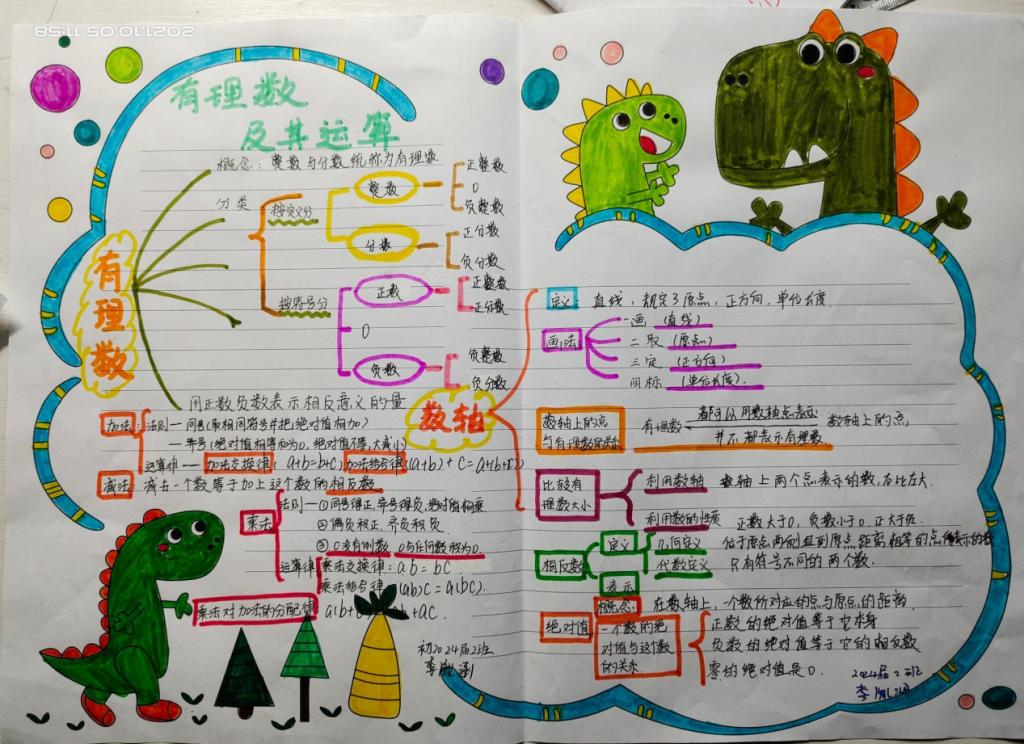 2021.10.05 11:58
有理数
及其运算
有理数
概念：整数与分数统称为有理数
分类
按定义分
整数
正整数
0
负整数
分数
正分数
负分数
按符号分
正数
正整数
正分数
0
负数
负整数
负分数
用正数负数表示相反意义的量
加法：法则一同号(取相同符号并把绝对值相加)
一异号(绝对值相等和为0，绝对值不等，大减小)
运算律一加法交换律(a+b=b+c)加法结合律(a+b)+c=a+(b+c)
减法 减去一个数等于加上这个数的相反数
乘法
法则一①同号得正，异号得负，绝对值相乘
②偶负积正，奇负积负
③0没有倒数，0与任何数积为0
运算律
乘法交换律：ab=bc
乘法结合律(ab)c=a(bc)
乘法对加法的分配律 ac.
初2024届2班
数轴
定义 直线，规定了原点，正方向，单位长度.
画法
一画 (直线)
二取 (原点)
三定 (正方向)
四标 (单位长度).
数轴上的点
与有理数的关系
有理数 都可以用数轴点表示 数轴上的点，
并不都表示有理数.
比较有
理数大小
利用数轴 数轴上两个点表示的数，右比左大.
利用数的性质 正数大于0，负数小于0，正大于负.
相反数
定义
几何定义 位于原点两侧且到原点距离相等的点所表示的数
代数定义 只有符号不同的两个数.
表示
绝对值
概念 在数轴上，一个数所对应的点与原点的距离
一个数的绝
对值与这个数
的关系
正数的绝对值等于它本身
负数的绝对值等于它的相反数
零的绝对值是0.
2024届2班